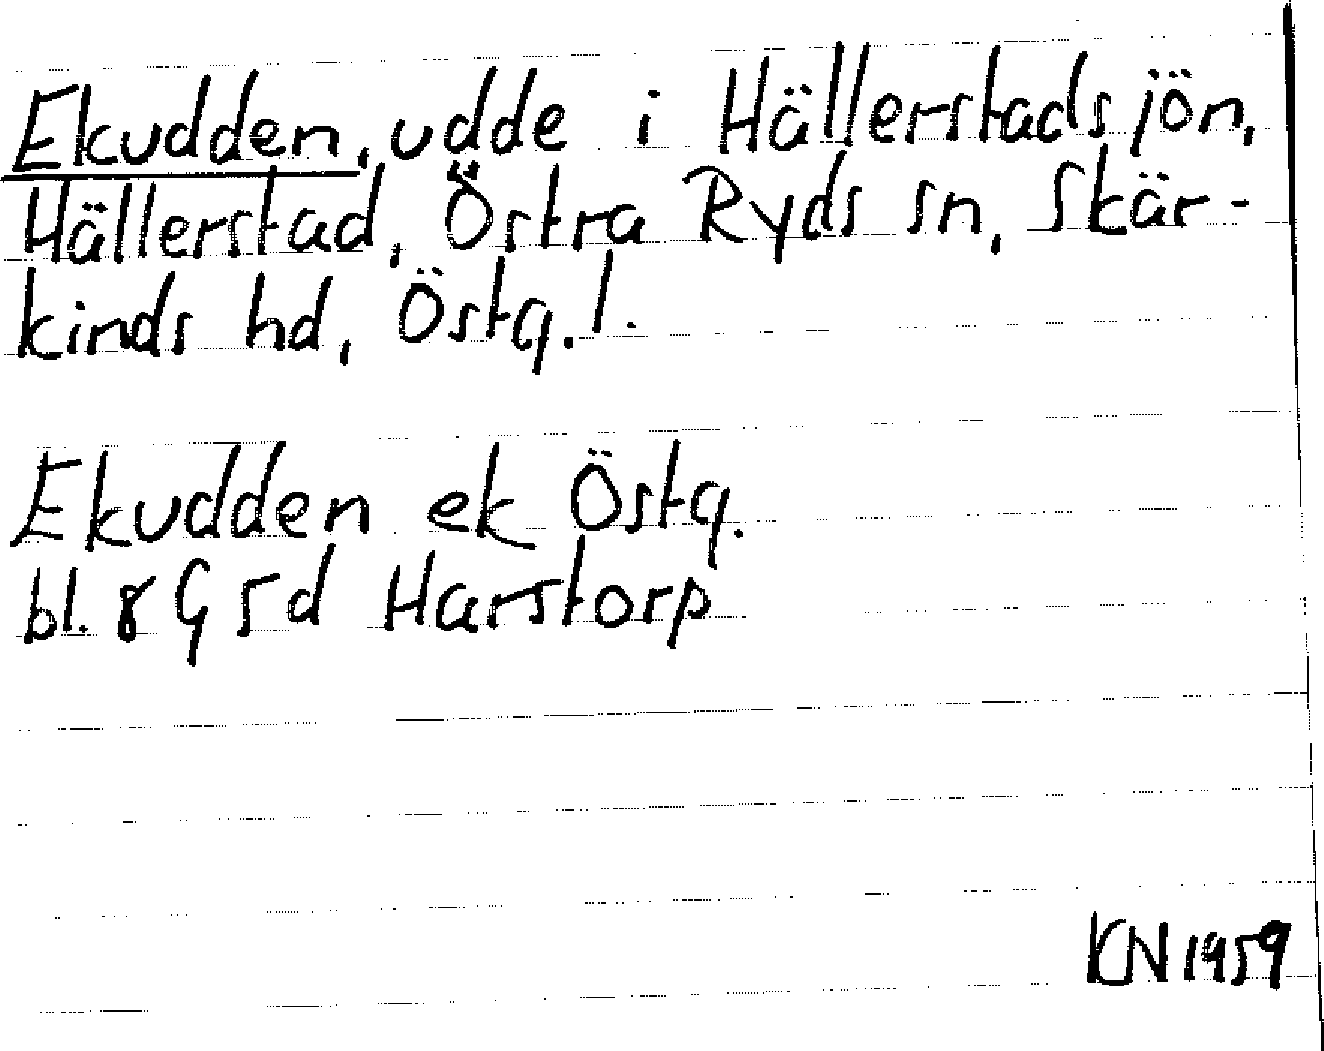 Ekudden, udde i Hällerstadsjön,
Hällerstad, Östra Ryds sn, Skär-
kinds hd, Östg. l.
Ekudden ek Östg.
bl. 8 G 5d Harstorp
KN 1959